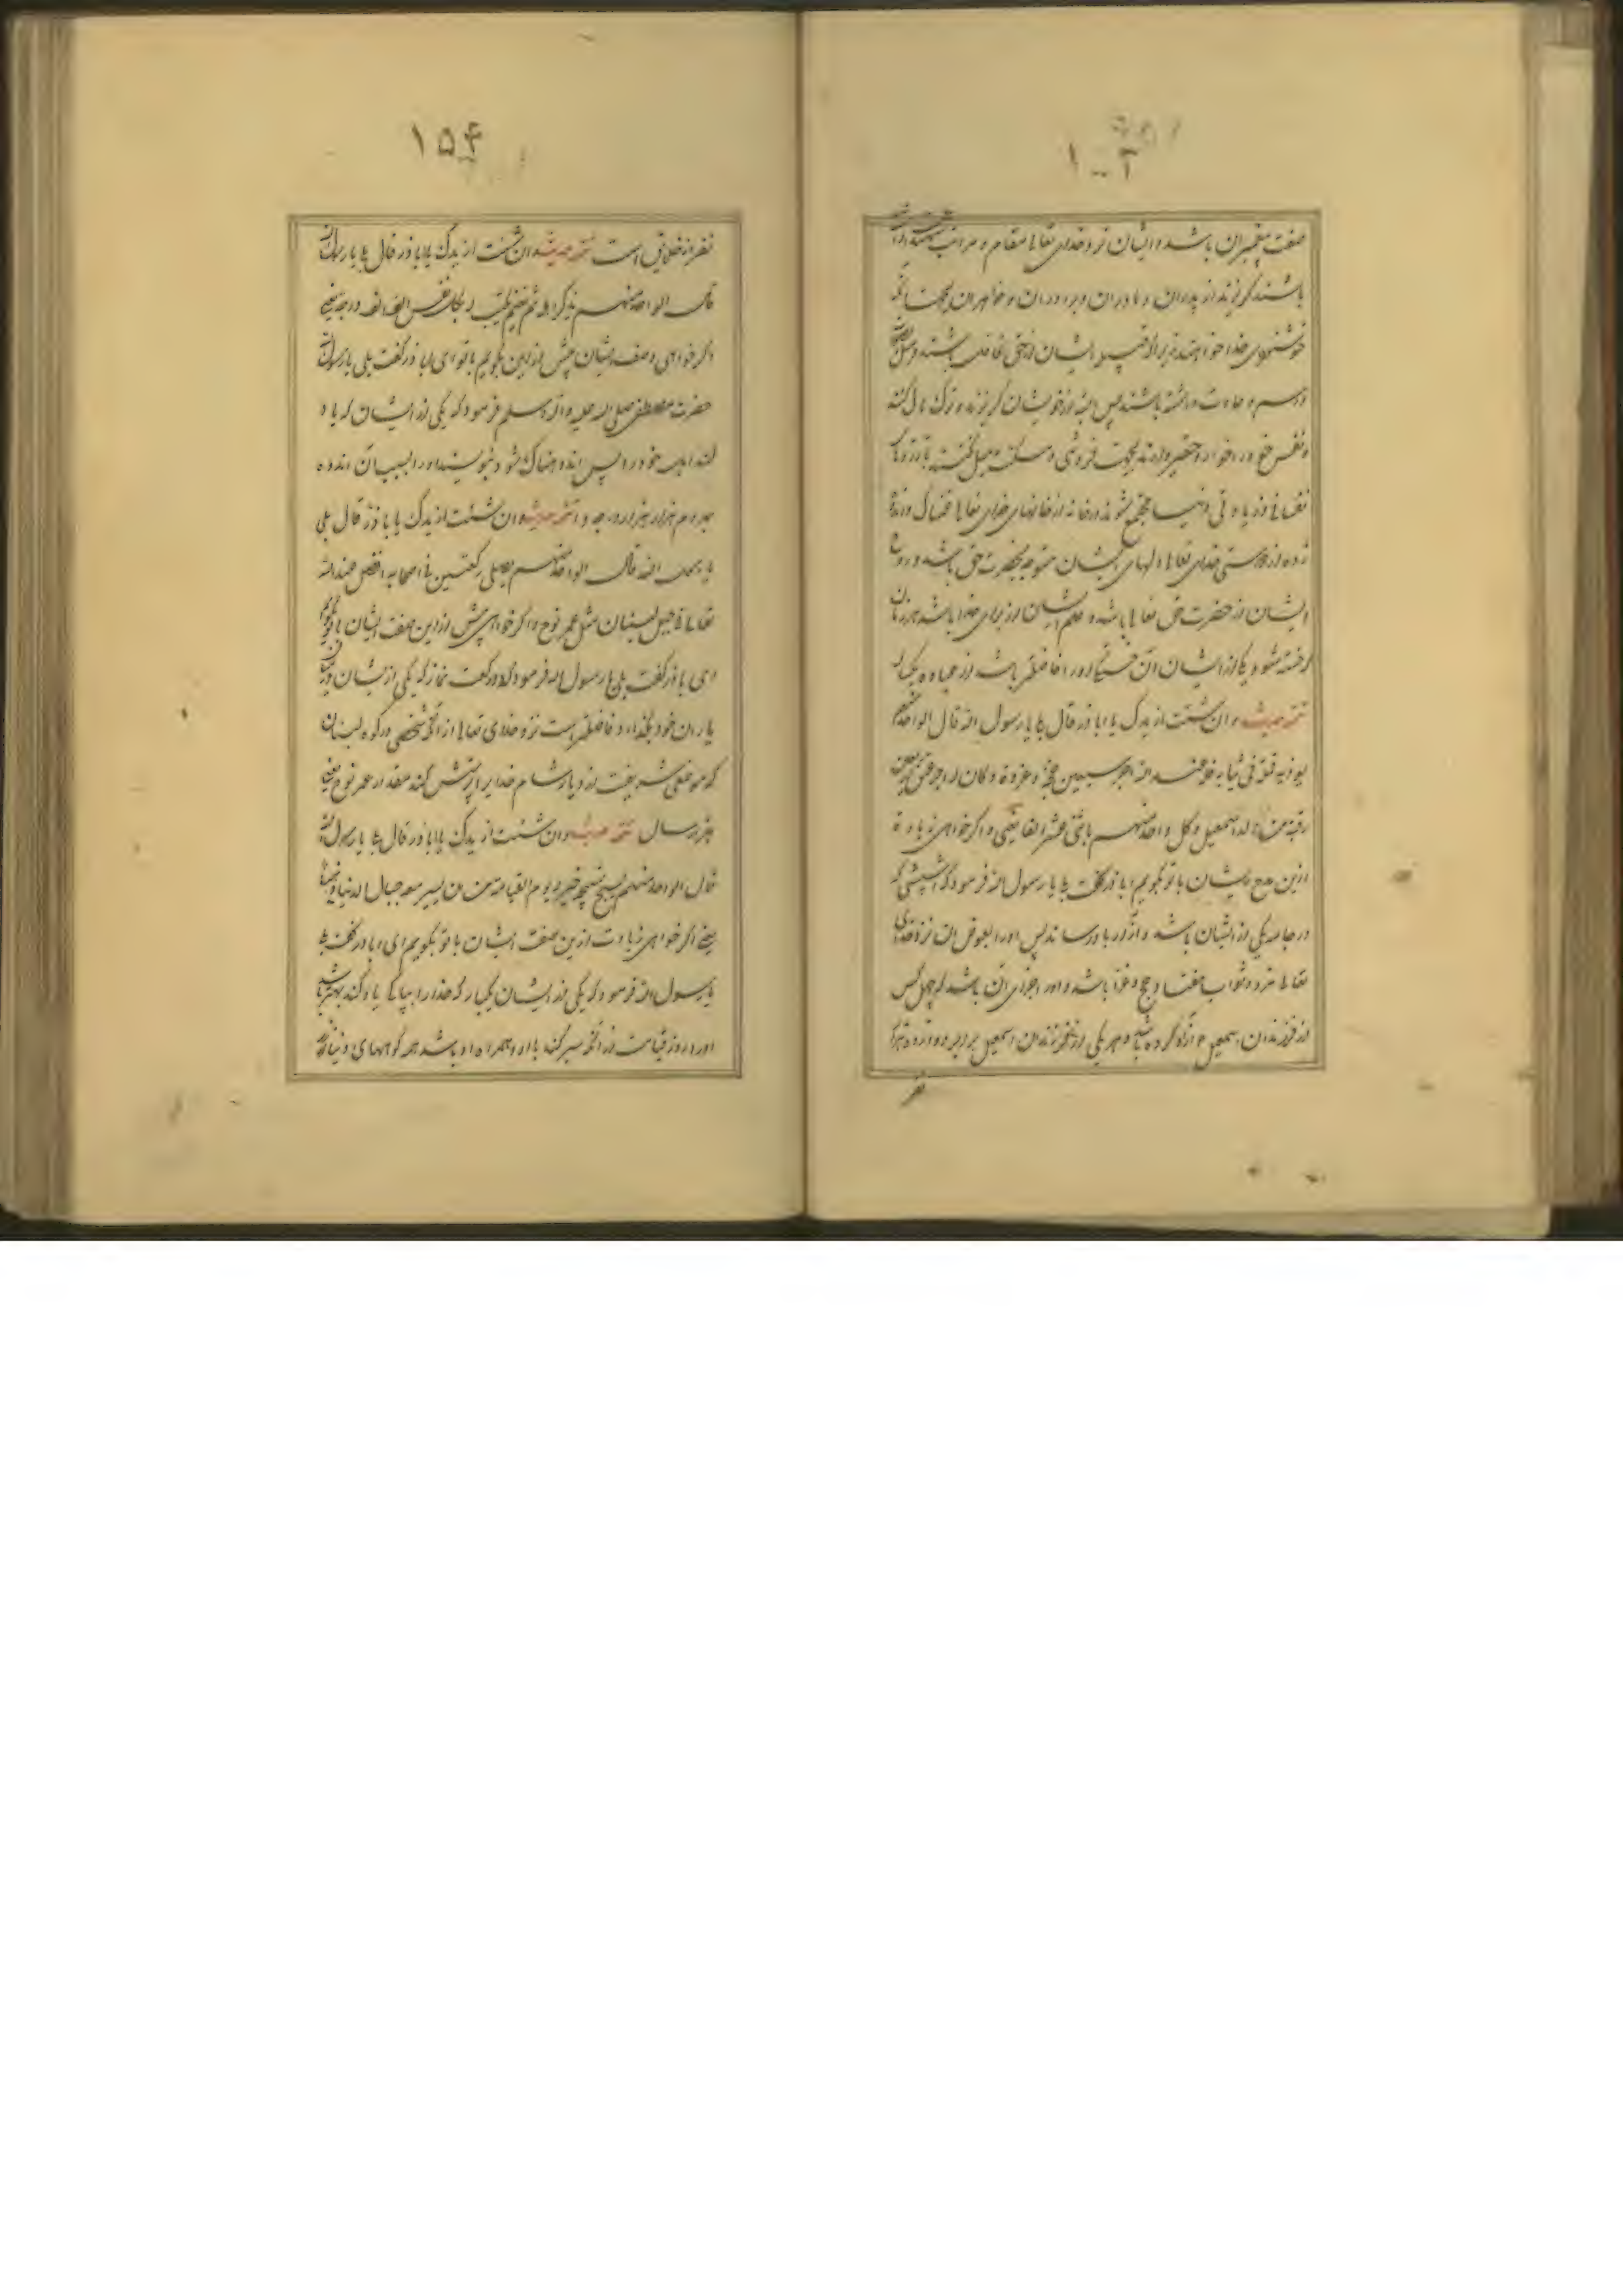 صفت پیغمبران باشد و ایشان نزد خدای تعالی مقام و مراتب
باشند که گریزند از پدران و مادران و برادران و خواهران بجهت آنکه
خوشنودی خدا خواهند زیرا که قبیله ایشان از حق غافل باشند و
رسم و عادت داشته باشند پس البته از خویشان گریزند و ترک مال کنند
و نفس خود را خوار و حقیر دارند بجهت فروتنی و
در خانه از خانهای خدای تعالی
از دوستی خدای تعالی دلهای ایشان متوجه بحضرت حق باشد و روح
ایشان از حضرت حق تعالی باشد و علم ایشان از برای خدا باشد هرزمان
که خسته شود یکی از ایشان آن خستگی او را فاضلتر باشد از عباده یکساله
تتمه حدیث و ان شئت ازیدک یا ابا ذر قال بلی یا رسول الله قال الواحد منهم
یؤذیه قملة فی ثیابه فله عند الله اجر سبعین حجة و غزوة و کان له اجر عتق اربعین
رقبة من ولد اسمعیل و کل واحد منهم باثنی عشر الفا یعنی و اگر خواهی زیادة
ازین مدح ایشان با تو بگویم ابا ذر گفت بلی یا رسول الله فرمود که شپشی که
در جامه یکی از ایشان باشد و آزار باو رساند پس او را بعوض آن نزد خدای
تعالی مزد و ثواب هفتاد حج و غزا باشد و او را جزای آن باشد که چهل کس
از فرزندان اسمعیل آزاد کرده باشد و هر یکی از فرزندان اسمعیل برابر دوازده هزار
نفر
۱۵۴
نفر از خلایق است تتمه حدیث و ان شئت ازیدک یا ابا ذر قال بلی یا رسول الله
قال الواحد منهم یذکر اهله ثم یغتم یکتب له بکل نفس الف الف درجه یعنی
اگر خواهی وصف ایشان بیش ازین بگویم با تو ای ابا ذر گفت بلی یا رسول الله
حضرت مصطفی صلی الله علیه و آله و سلم فرمود که یکی از ایشان که یاد
کند اهل خود را پس اندوهناک شود بنویسند او را بسبب آن اندوه
بهر دم هزار هزار درجه و تتمه حدیث و ان شئت ازیدک یا ابا ذر قال بلی
یا رسول الله قال الواحد منهم یصلی رکعتین فی اصحابه افضل عند الله
تعالی فی جبل لبنان مثل عمر نوح و اگر خواهی بیش ازین صفت ایشان با تو بگویم
ای ابا ذر گفت بلی یا رسول الله فرمود که دو رکعت نماز که یکی از ایشان در میان
یاران خود بگذارد فاضلتر است نزد خدای تعالی از آنکه شخصی در کوه لبنان
که موضعی شریفست از دیار شام خدای را پرستش کند مقدار عمر نوح یعنی
هزار سال تتمه حدیث و ان شئت ازیدک یا ابا ذر قال بلی یا رسول الله
قال الواحد منهم یسبح تسبیحة خیر له یوم القیامة من ان یسیر معه جبال الدنیا
یعنی اگر خواهی زیادت ازین صفت ایشان با تو بگویم ای ابا ذر گفت بلی
یا رسول الله فرمود که یکی از ایشان یکبار که خدا را بپاکی یاد کند بهتر باشد
او را روز قیامت از آنکه سیر کند با او و همراه او باشد همه کوههای دنیا